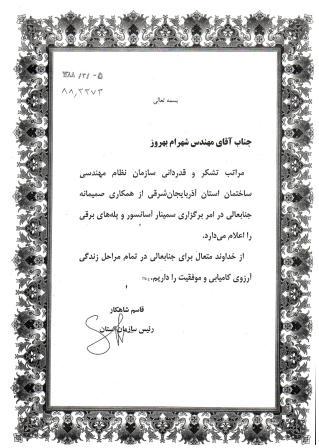 ۱۳۸۸/۳/۰۵
۸۸,۳۲۷۳
بسمه تعالی
جناب آقای مهندس شهرام بهروز
مراتب تشکر و قدردانی سازمان نظام مهندسی
ساختمان استان آذربایجان‌شرقی از همکاری صمیمانه
جنابعالی در امر برگزاری سمینار آسانسور و پله‌های برقی
را اعلام می‌دارد.
از خداوند متعال برای جنابعالی در تمام مراحل زندگی
آرزوی کامیابی و موفقیت را داریم.
قاسم شاهکار
رئیس سازمان استان